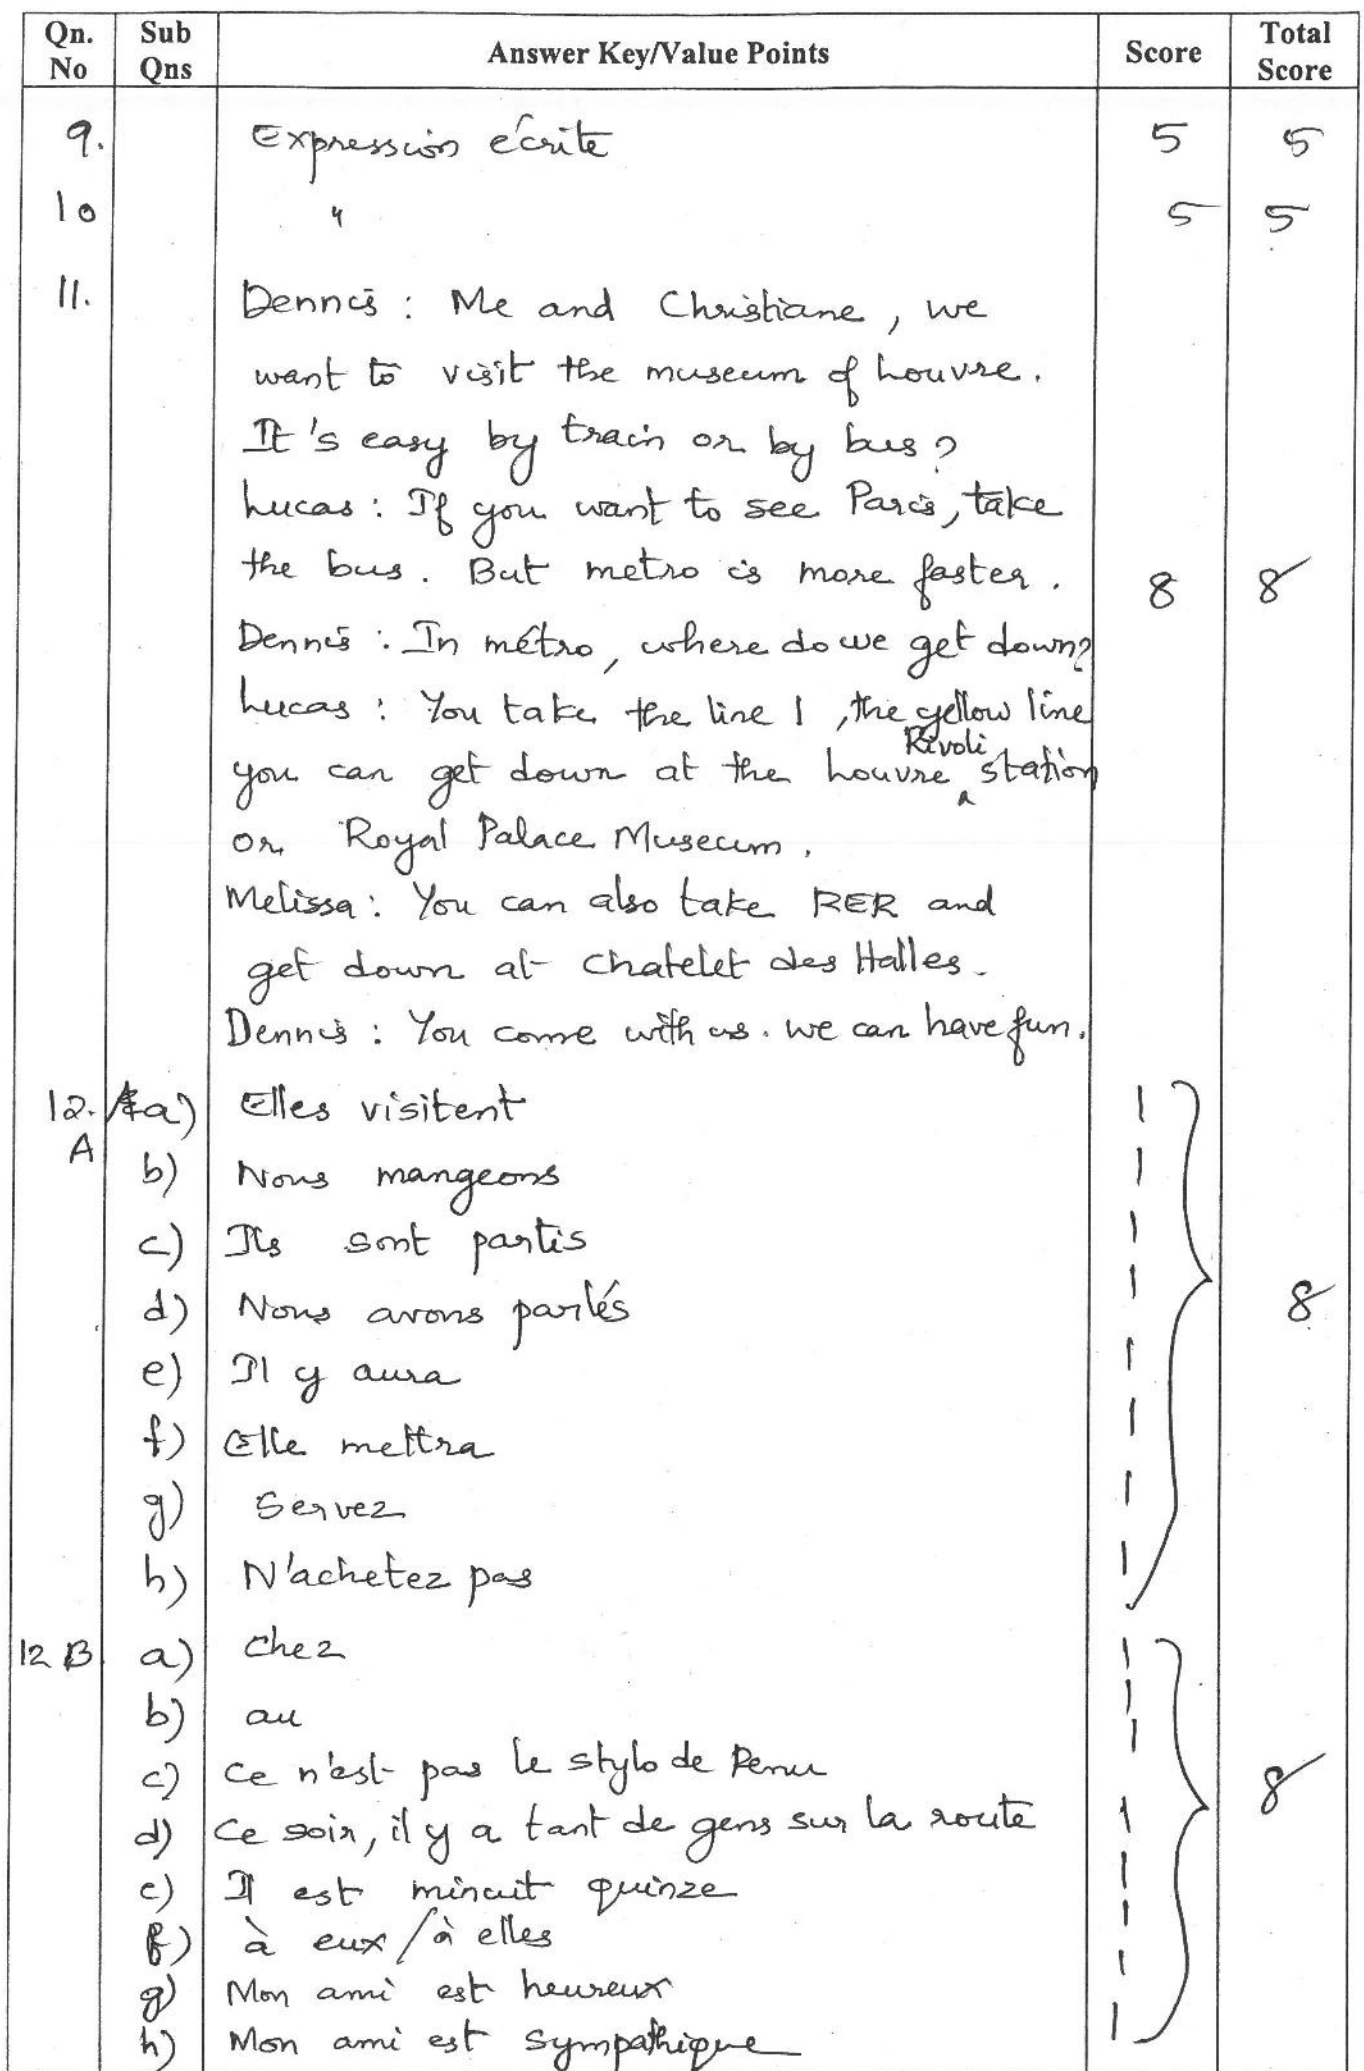 Qn. No Sub Qns Answer Key/Value Points Score Total Score
9. Expression écrite 5 5
10 " 5 5
11. Dennis : Me and Christiane, we
want to visit the museum of Louvre.
It's easy by train or by bus?
Lucas : If you want to see Paris, take
the bus. But metro is more faster. 8 8
Dennis : In métro, where do we get down?
Lucas : You take the line 1, the yellow line
you can get down at the Louvre Rivoli station
or Royal Palace Museum.
Melissa : You can also take RER and
get down at Chatelet des Halles.
Dennis : You come with us. We can have fun.
12. A a) Elles visitent 1
b) Nous mangeons 1
c) Ils sont partis 1
d) Nous avons parlés 1 8
e) Il y aura 1
f) Elle mettra 1
g) Servez 1
h) N'achetez pas 1
12 B a) Chez 1
b) au 1
c) Ce n'est pas le stylo de Renu 1
d) Ce soir, il y a tant de gens sur la route 1 8
e) Il est minuit quinze 1
f) à eux / à elles 1
g) Mon ami est heureux 1
h) Mon ami est sympathique 1